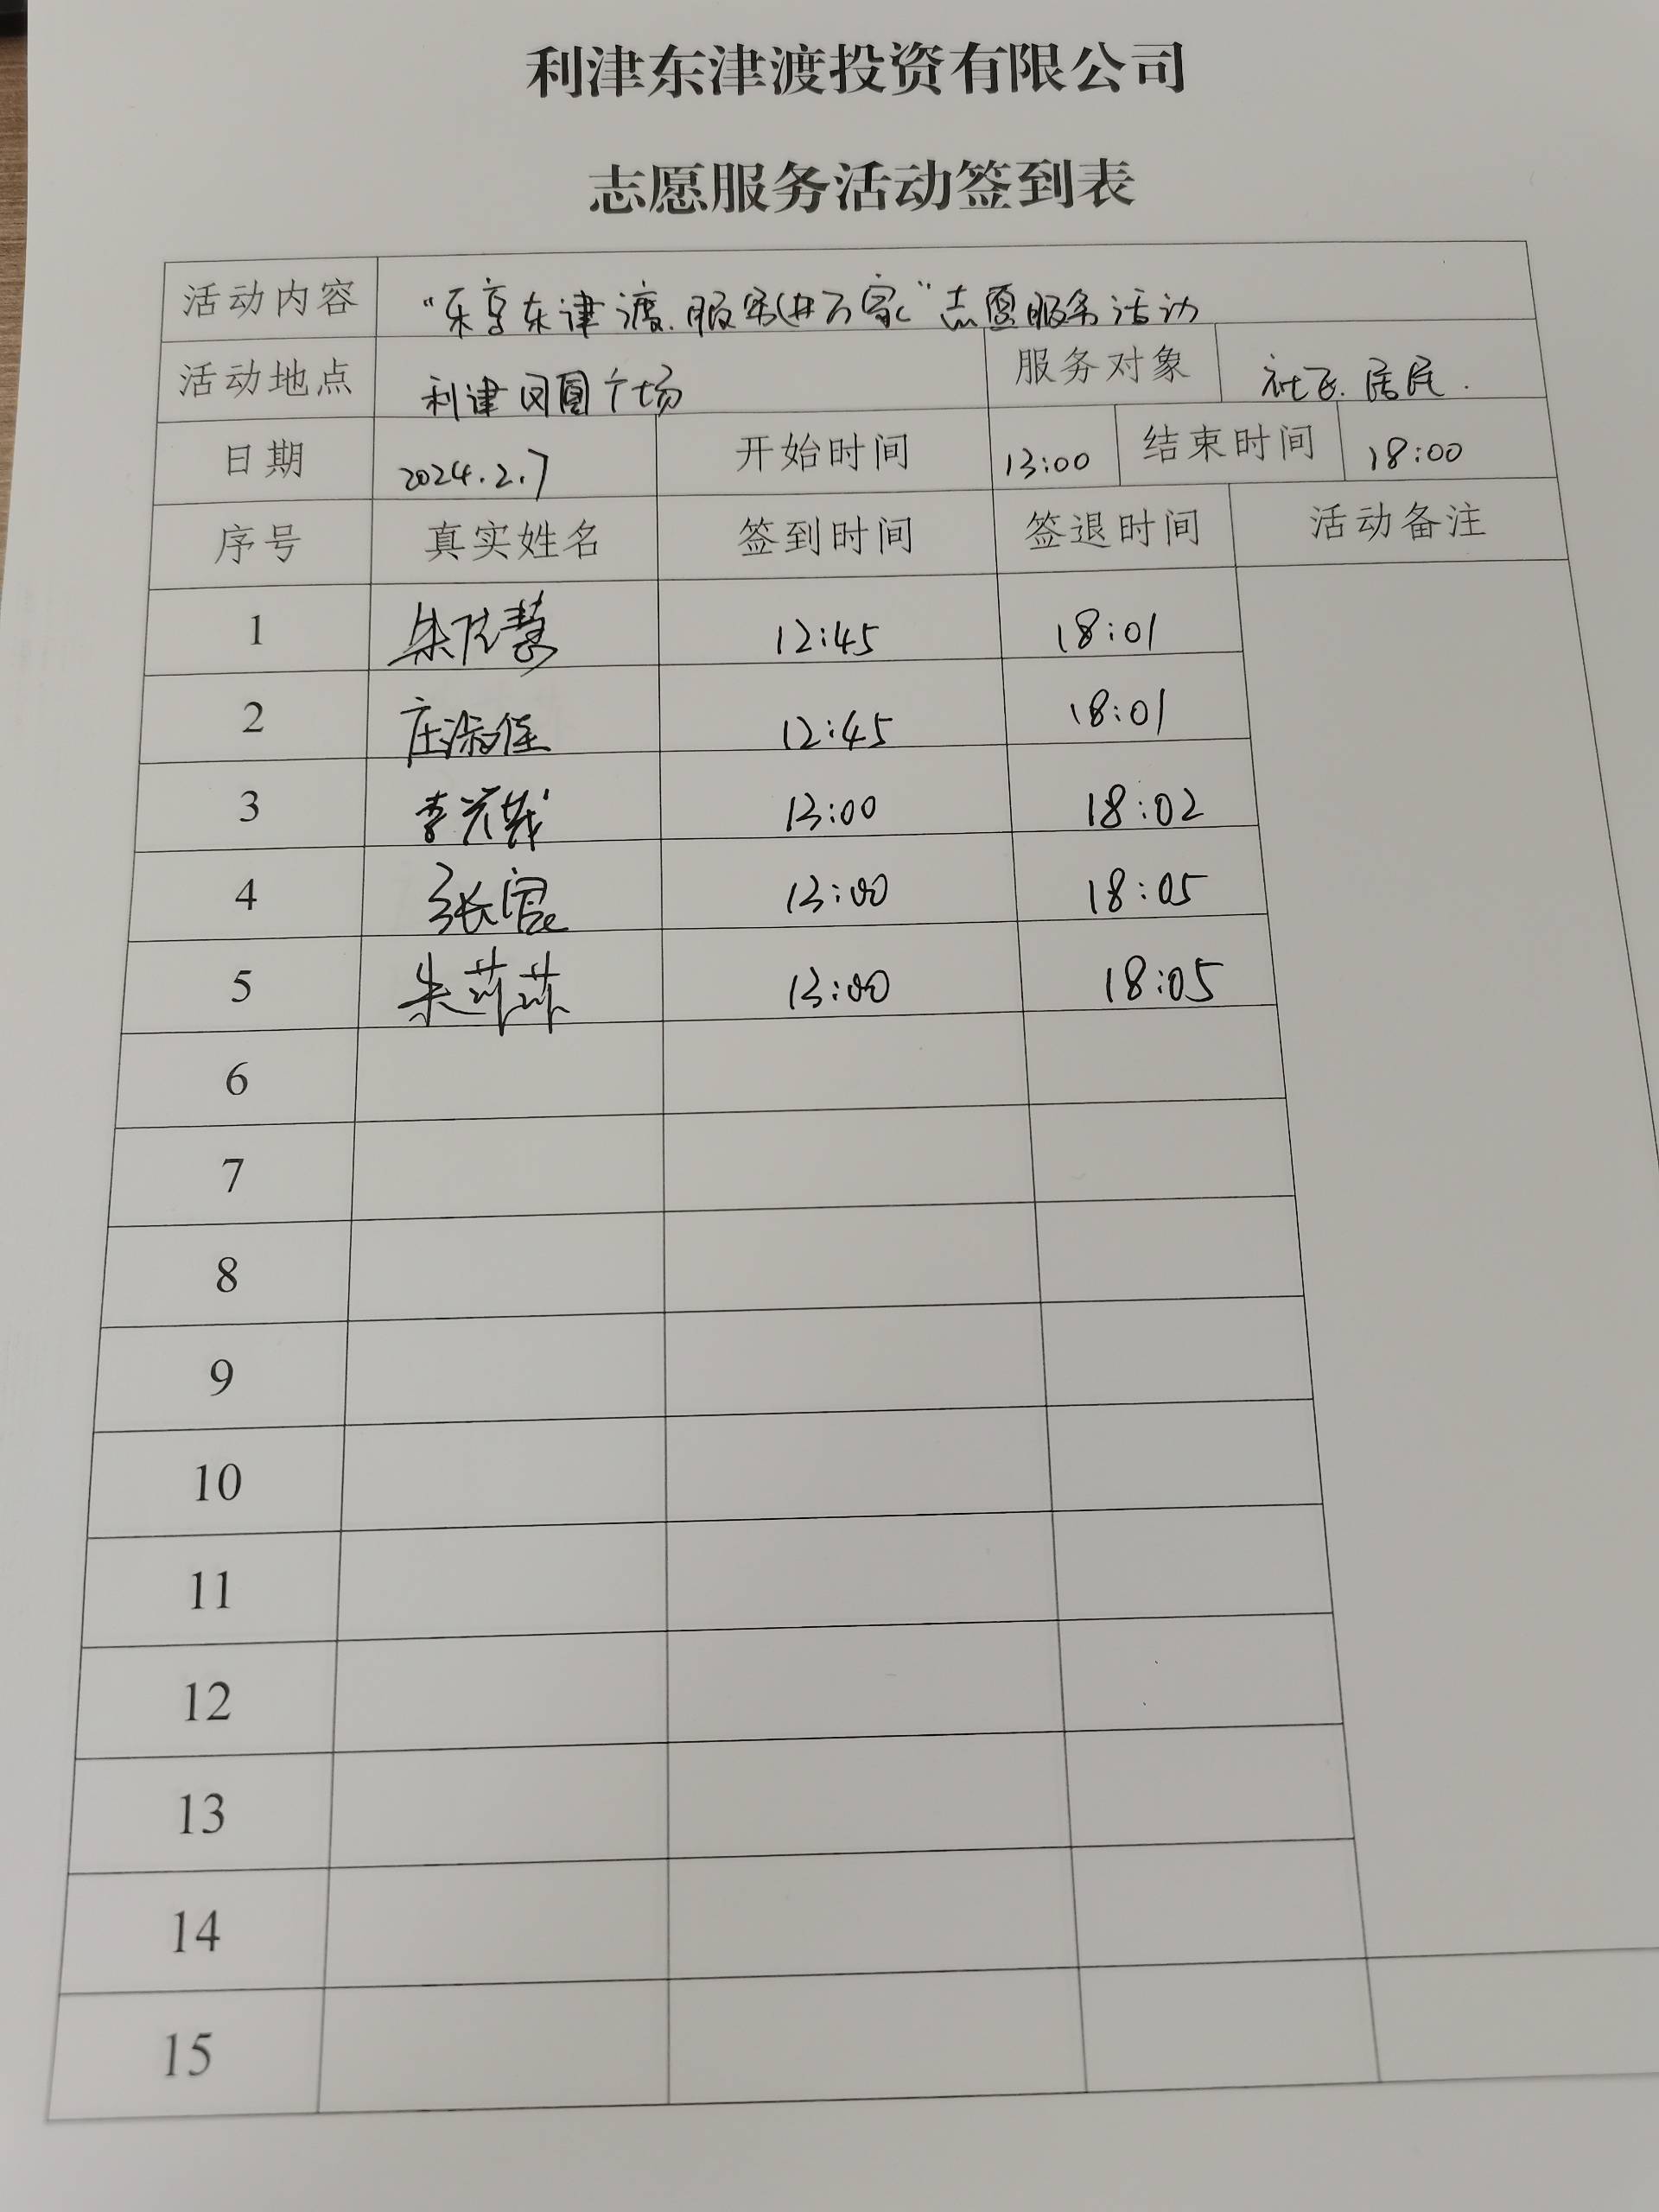 利津东津渡投资有限公司
志愿服务活动签到表
活动内容 “乐享东津渡.服务进万家”志愿服务活动
活动地点 利津凤凰广场 服务对象 社区居民.
日期 2024.2.7 开始时间 13:00 结束时间 18:00
序号 真实姓名 签到时间 签退时间 活动备注
1 12:45 18:01
2 庄淑佳 12:45 18:01
3 13:00 18:02
4 13:00 18:05
5 13:00 18:05
6
7
8
9
10
11
12
13
14
15